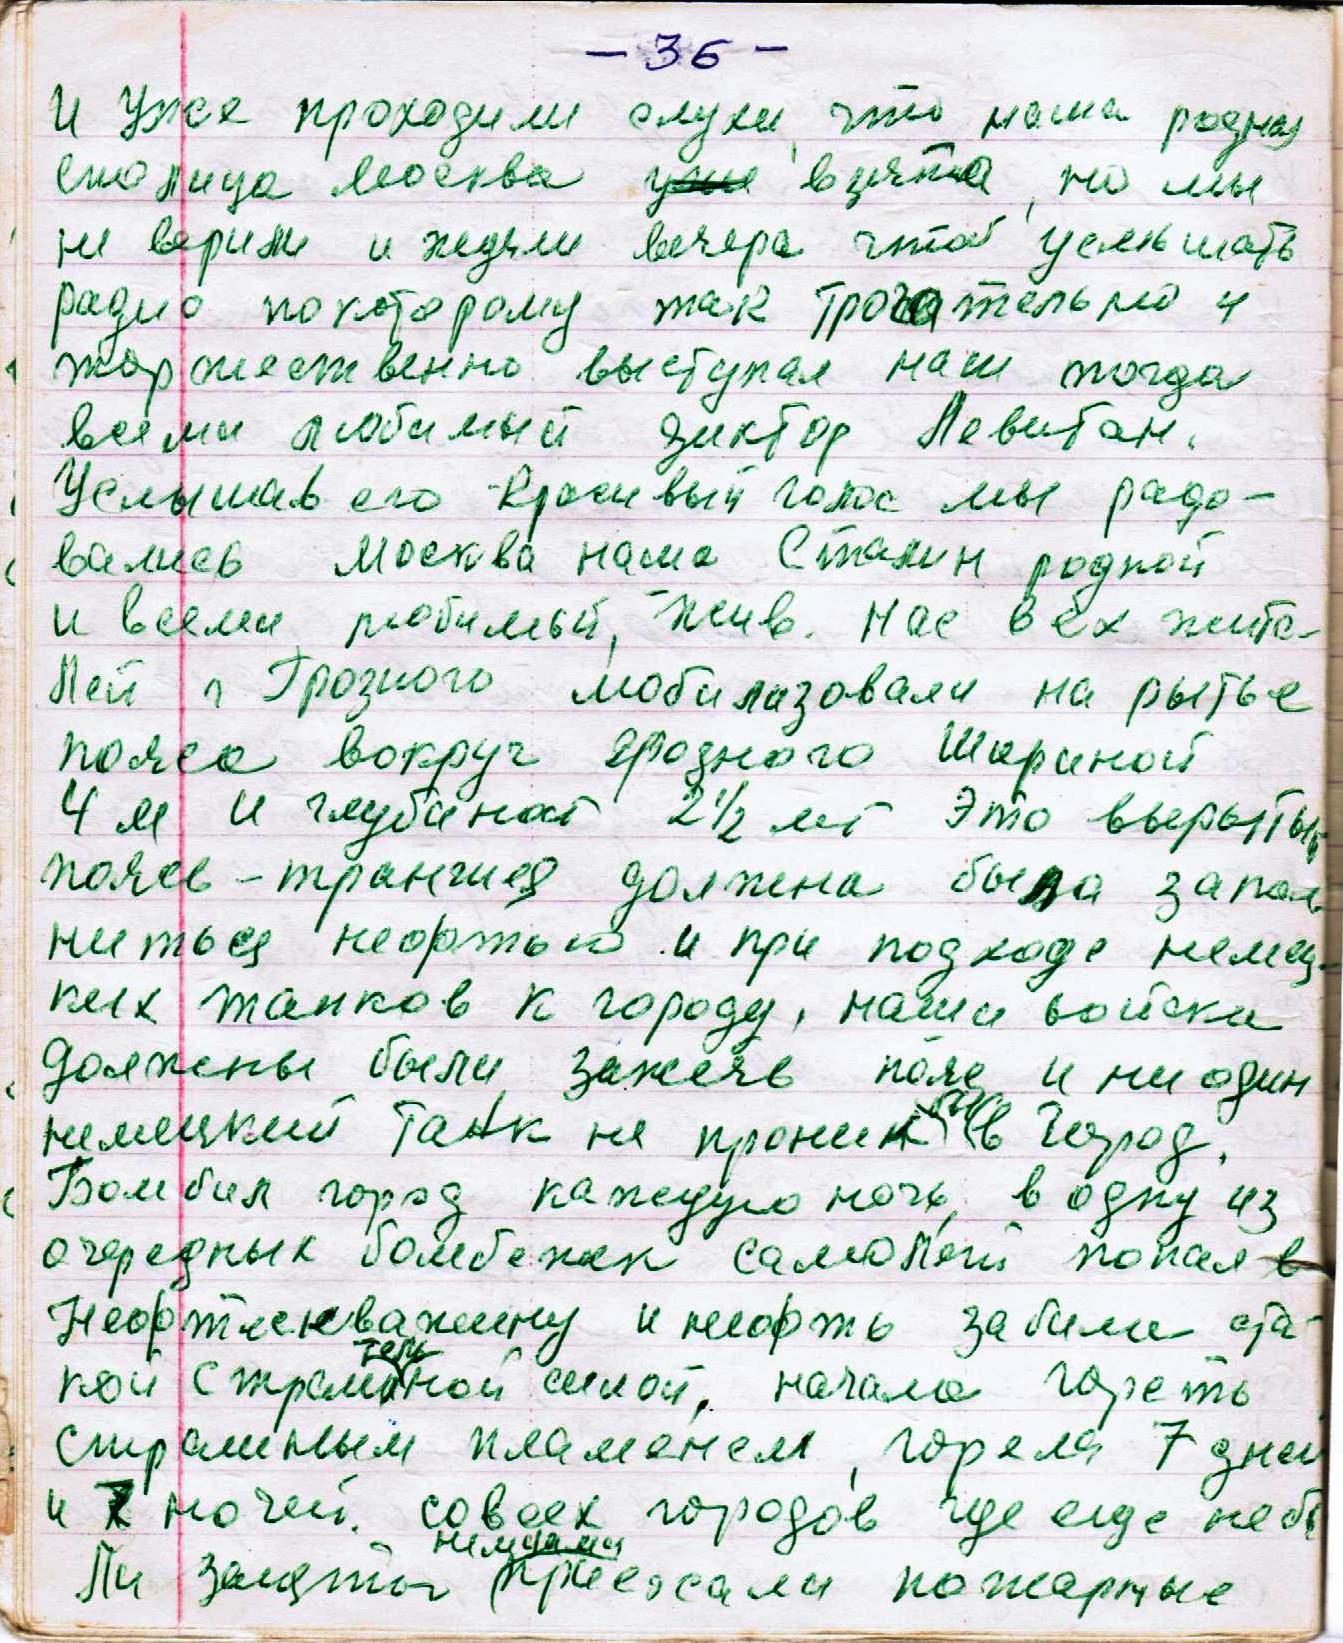 — 36 —
И уже проходили слухи, что наша родная
столица Москва уже взята, но мы
не верили и ждали вечера чтоб услышать
радио по которому так трогательно и
торжественно выступал наш тогда
всеми любимый диктор Левитан.
Услышав его красивый голос мы радо-
вались Москва наша Сталин родной
и всеми любимый, жив. Нас всех жите-
лей г Грозного мобилизовали на рытье
пояса вокруг Грозного шириной
4 м и глубиной 2½ мт Это вырытый
пояс - траншея должена была запол
ниться нефтью и при подходе немец-
ких танков к городу, наши войска
должены были зажечь пояс и ни один
немецкий танк не проник бы в город.
Бомбил город каждую ночь, в одну из
очередных бомбежек самолет попал в
Нефтескважину и нефть забила ста
кой стремительной силой, начала гореть
страшным пламенем, горела 7 дней
и 7 ночей. со всех городов где еще не бы
ли заняты немцами приезжали пожарные